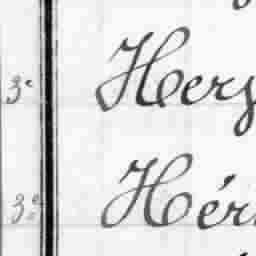 3e Herg
3e Hér